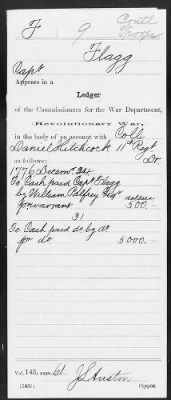 F 9 Contl
Troops
Flagg
Capt
Appears in a
Ledger
of the Commissioners for the War Department,
Revolutionary War,
in the body of an account with Coll
Daniel Hitchcock 11th Regt
as follows: Dr.
1776 Decemr. 24
To Cash paid Capt Flagg
by William Palfrey Esqr dollars
for warrant 500.—
31
To Cash paid do by do
for do 5000.—
Vol. 143, page 61
J S Austin
(565) Copyist.